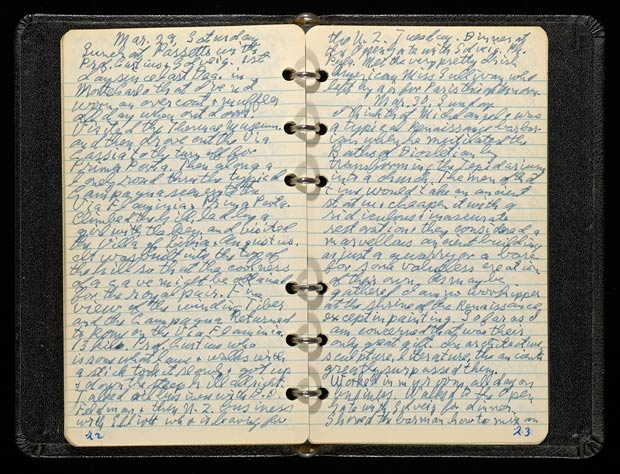 Mar. 29, Saturday
Lunch at Passetto with
Prof. Curtius & Solveig. 1st
day since last Dec. in
Monte Carlo that I've not
worn an overcoat & muffler
all day when outdoors.
Visited the Thermae Museum
and then drove out the Via
Cassia to the turn off for
Prima Porta. Then along a
lonely road thru the typical
Campagna scenery to the
Via Flaminia & Prima Porta.
Climbed the hill, led by a
girl with the key, and visited
the Villa of Livia & Augustus.
It was built into the top of
the hill so that the coolness
of a cave might be obtained
for the royal pair. Fine
view of the winding Tiber
and the Campagna. Returned
to Rome on the Via Flaminia,
13 kilo. Prof. Curtius who
is somewhat lame & walks with
a stick took it slowly & got up
& down the steep hill all right.
Talked business with
Feldman & then N.Z. business
with Elliott who is leaving for
22
the N.Z. Tuesday. Dinner at
the Open Gate with Solveig.
Met the very attractive
American Miss Sullivan who
left by air for Paris this afternoon.
Mar. 30, Sunday
I think that Michaelangelo was
a typical Renaissance barbar-
ian when he mutilated the
Baths of Diocletian by
transforming the tepidarium
into a church. The men of that
time would take an ancient
statue & cheapen it with a
ridiculous & inaccurate
restoration & they considered a
marvellous ancient building
as just a quarry or a base
for some valueless creation
of their own. As may be
gathered I am no worshipper
at the shrine of the Renaissance
except in painting. So far as I
am concerned that was their
only great gift. In architecture,
sculpture, literature, the ancients
greatly surpassed them.
Worked in my room all day on
business. Walked to the Open
Gate with Solveig for dinner.
Showed the barman how to make an
23